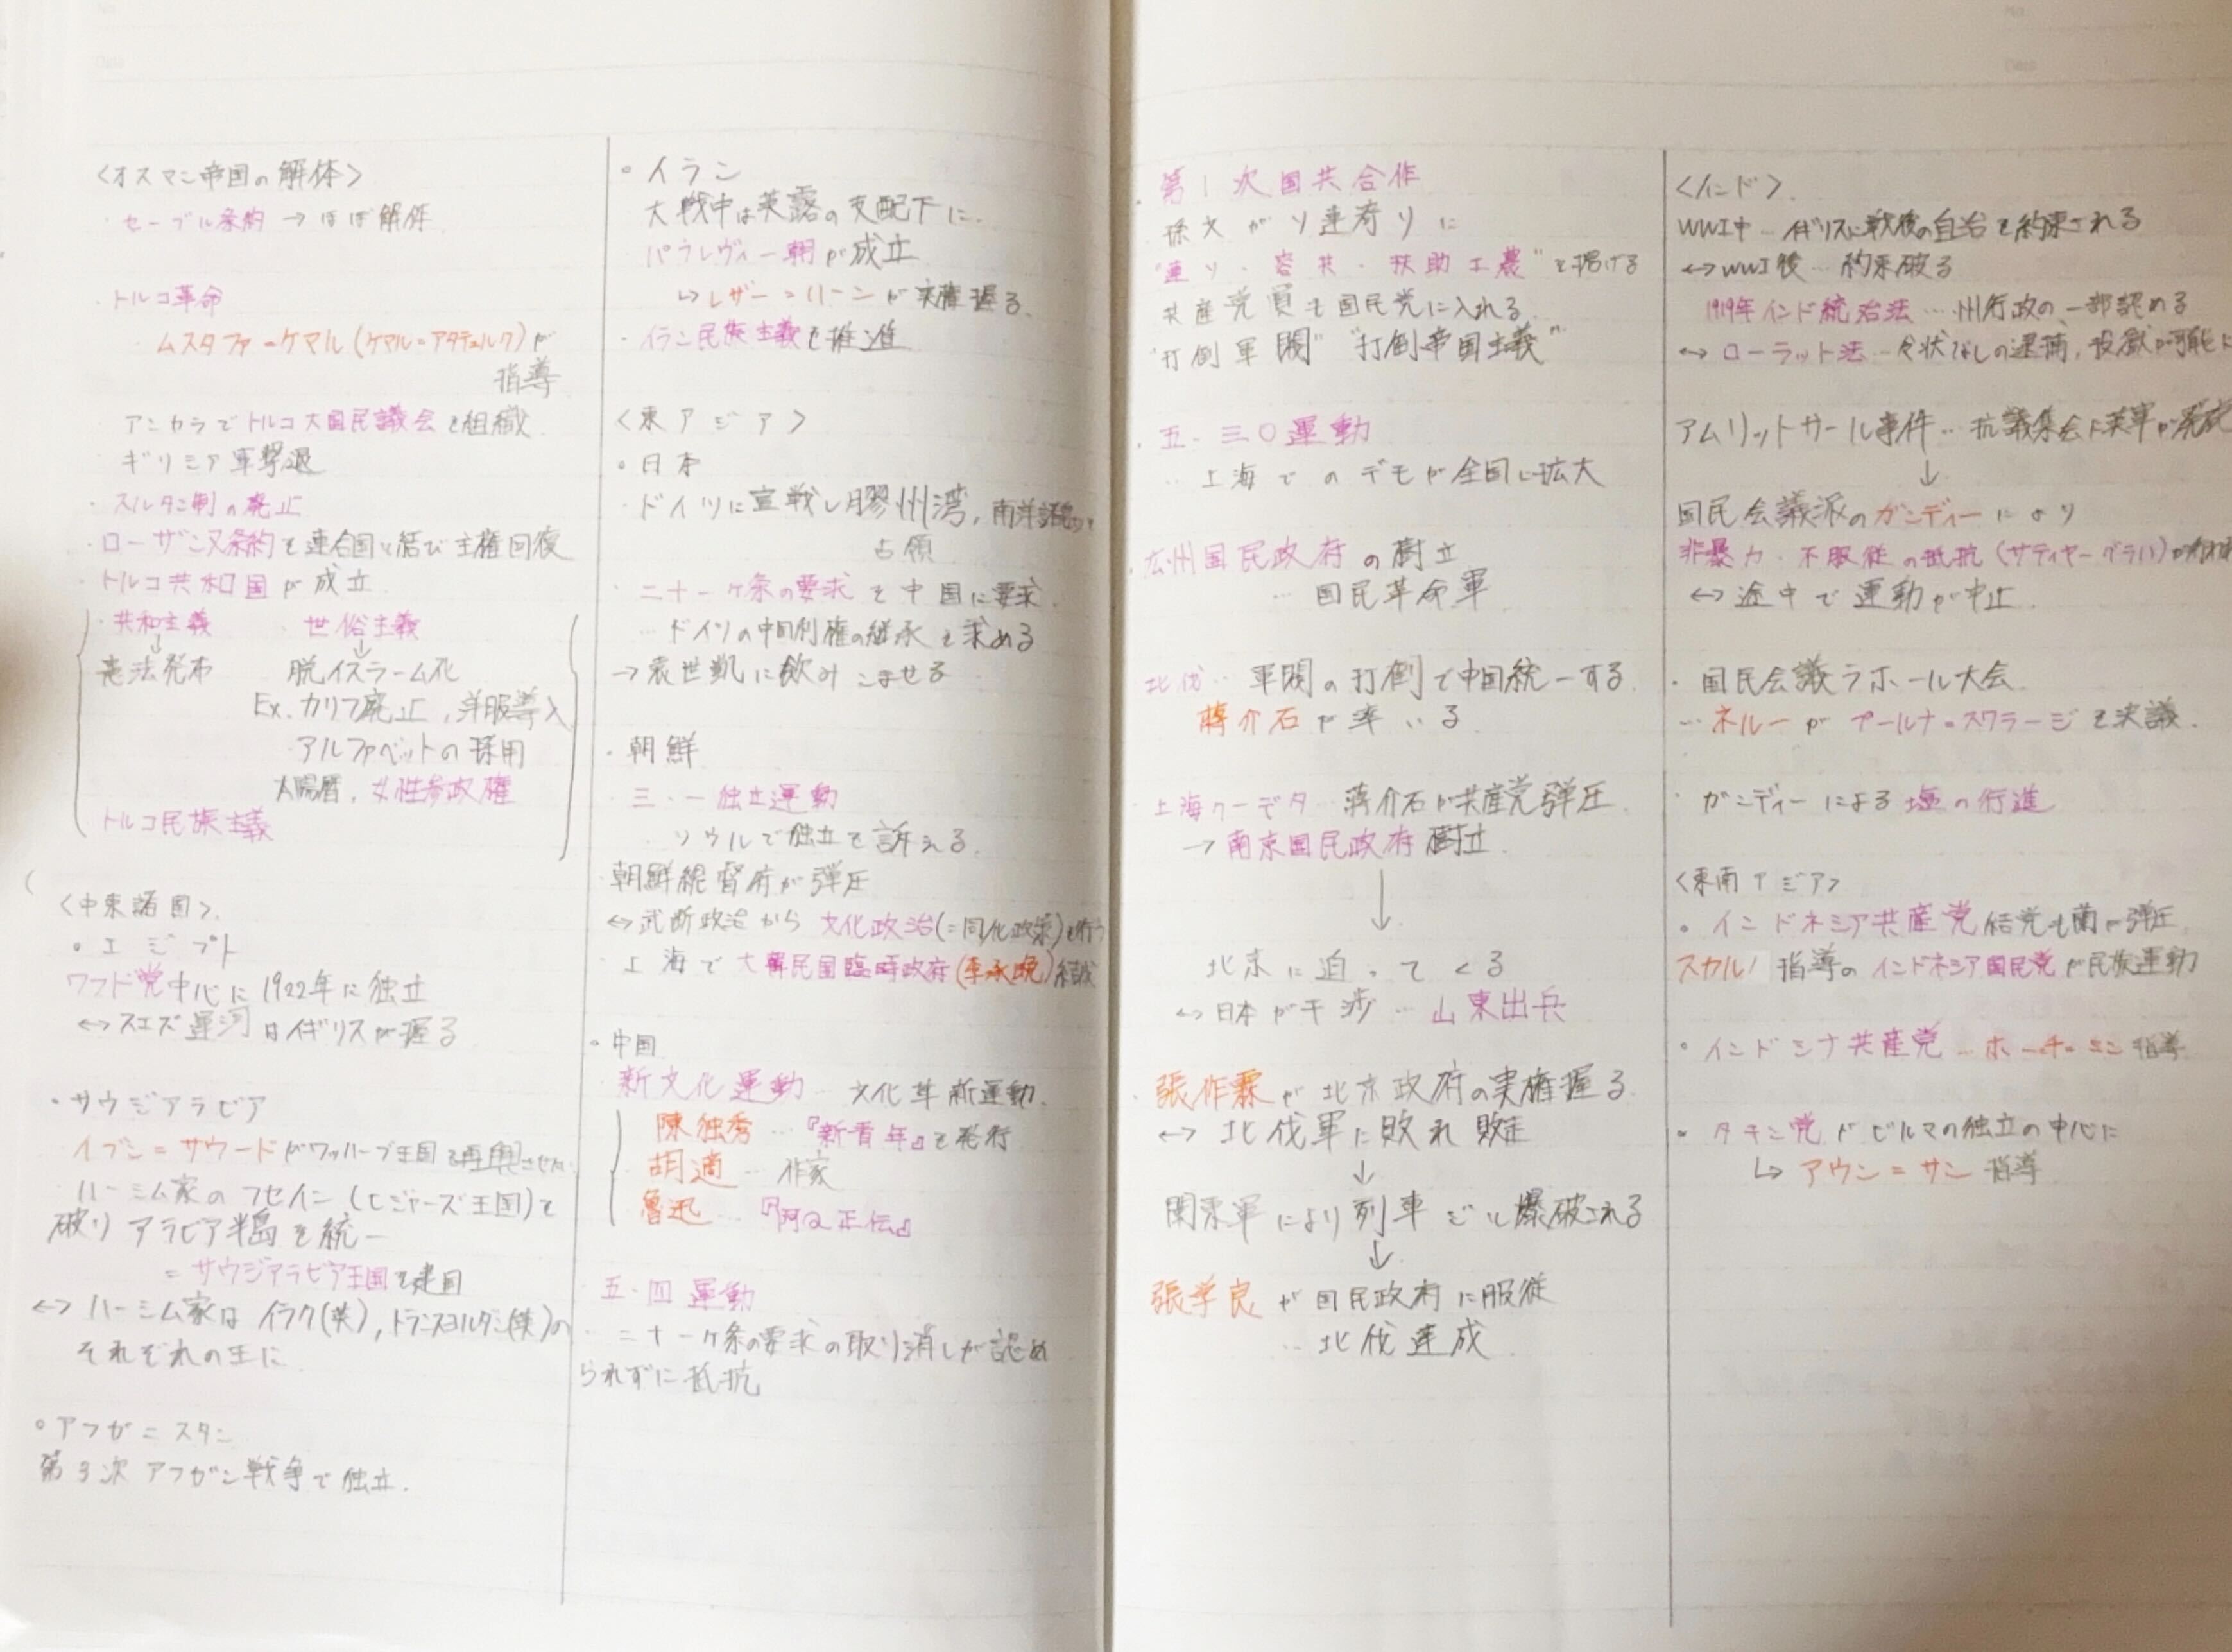 <オスマン帝国の解体>
・セーブル条約 → ほぼ解体
・トルコ革命
ムスタファ=ケマル(ケマル=アタテュルク)が
指導
アンカラでトルコ大国民議会を組織
ギリシア軍撃退
・スルタン制の廃止
・ローザンヌ条約を連合国と結び主権回復
・トルコ共和国が成立
・共和主義 ・世俗主義
↓ ↓
憲法発布 脱イスラーム化
Ex.カリフ廃止,洋服導入
アルファベットの採用
太陽暦,女性参政権
トルコ民族主義
<中東諸国>
。エジプト
ワフド党中心に1922年に独立
↔スエズ運河はイギリスが握る
・サウジアラビア
イブン=サウードがワッハーブ王国を再興させ
ハーシム家のフセイン(ヒジャーズ王国)を
破りアラビア半島を統一
=サウジアラビア王国を建国
↔ハーシム家はイラク(英),トランスヨルダン(英)の
それぞれの王に
。アフガニスタン
第3次アフガン戦争で独立.
。イラン
大戦中は英露の支配下に.
パフレヴィー朝が成立
↳レザー=ハーンが実権握る.
・イラン民族主義を推進
<東アジア>
。日本
・ドイツに宣戦し膠州湾,南洋諸島を
占領
・二十一ヶ条の要求を中国に要求.
…ドイツの中国利権の継承を求める
→袁世凱に飲みこませる
・朝鮮
三・一独立運動
…ソウルで独立を訴える.
朝鮮総督府が弾圧
↔武断政治から文化政治(=同化政策)を行う
・上海で大韓民国臨時政府(李承晩)結成
。中国
新文化運動…文化革新運動.
陳独秀…『新青年』を発行
胡適…作家
魯迅…『阿Q正伝』
・五・四運動
…二十一ヶ条の要求の取り消しが認め
られずに抵抗
・第1次国共合作
孫文がソ連寄りに
"連ソ・容共・扶助工農"を掲げる
共産党員も国民党に入れる.
"打倒軍閥""打倒帝国主義"
・五・三〇運動
…上海でのデモが全国に拡大
・広州国民政府の樹立
…国民革命軍
北伐…軍閥の打倒で中国統一する
蔣介石が率いる
・上海クーデタ…蔣介石が共産党弾圧
→南京国民政府樹立.
↓
北京に迫ってくる
↔日本が干渉…山東出兵
・張作霖が北京政府の実権握る
↔北伐軍に敗れ敗走
↓
関東軍により列車ごと爆破される
↓
張学良が国民政府に服従
…北伐達成
<インド>
WWI中…イギリスに戦後の自治を約束される
↔WWI後…約束破る
1919年インド統治法…州行政の一部認める
↔ローラット法…令状なしの逮捕,投獄が可能に
アムリットサール事件…抗議集会に英軍が発砲
↓
国民会議派のガンディーにより
非暴力・不服従の抵抗(サティヤーグラハ)が
↔途中で運動が中止
・国民会議ラホール大会
…ネルーがプールナ=スワラージを決議.
・ガンディーによる塩の行進
<東南アジア>
。インドネシア共産党結党も蘭が弾圧
スカルノ指導のインドネシア国民党が民族運動
。インドシナ共産党…ホー=チ=ミン指導
。タキン党がビルマの独立の中心に
↳アウン=サン指導